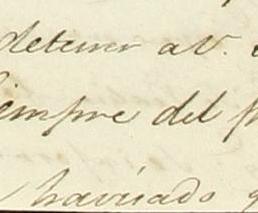 detener a V.
siempre del
havisado